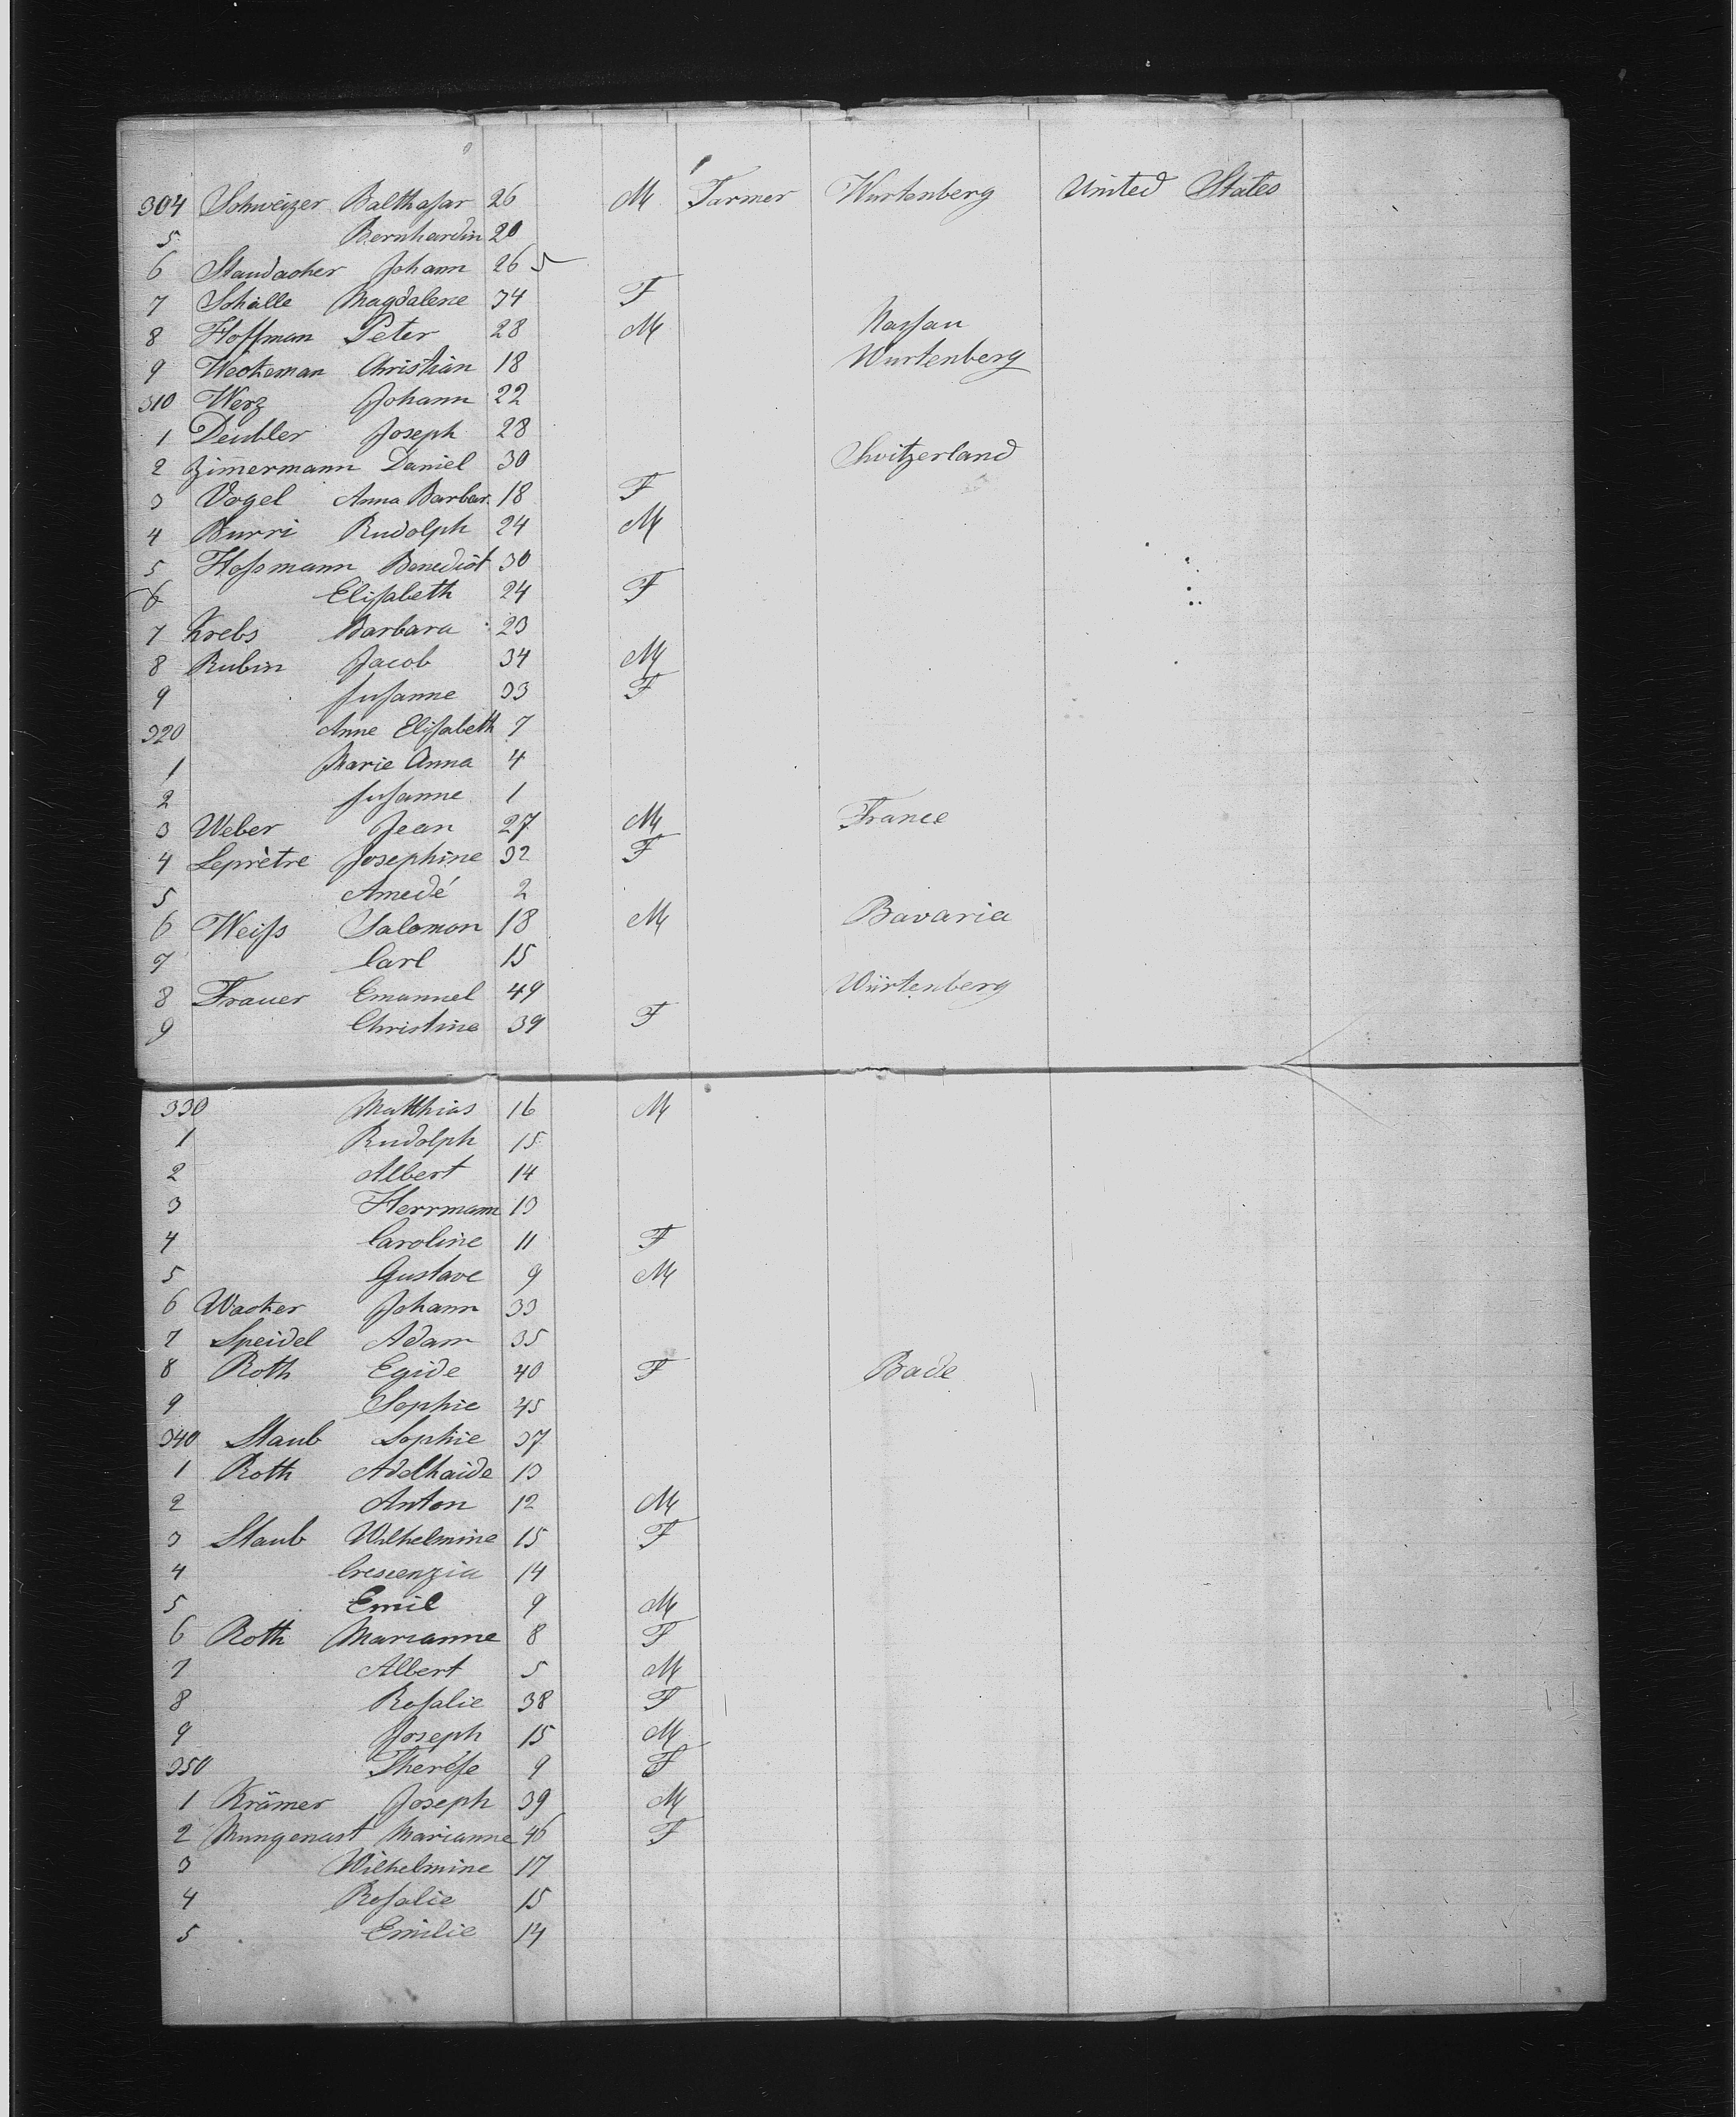 304 Schweizer Balthasar 26 M Farmer Wurtenberg United States
5 Bernhardin 20
6 Staudacher Johann 26 5
7 Schälle Magdalene 34 F
8 Hoffman Peter 28 M Nassau
9 Weckeman Christian 18 Wurtenberg
310 Werz Johann 22
1 Deubler Joseph 28
2 Zimmermann Daniel 30 Switzerland
3 Vogel Anna Barbar. 18 F
4 Burri Rudolph 24 M
5 Hossmann Benedict 30
6 Elisabeth 24 F
7 Krebs Barbara 23
8 Rubin Jacob 34 M
9 Susanne 33 F
320 Anne Elisabeth 7
1 Marie Anna 4
2 Susanne 1
3 Weber Jean 27 M France
4 Leprètre Josephine 32 F
5 Amedé 2
6 Weiss Salomon 18 M Bavaria
7 Carl 15
8 Frauer Emanuel 49 Würtenberg
9 Christine 39 F
330 Matthias 16 M
1 Rudolph 15
2 Albert 14
3 Herrmann 13
4 Caroline 11 F
5 Gustave 9 M
6 Wacker Johann 33
7 Speidel Adam 35
8 Roth Egide 40 F Bade
9 Sophie 45
340 Staub Sophie 37
1 Roth Adelhaide 13
2 Anton 12 M
3 Staub Wilhelmine 15 F
4 Crescenzia 14
5 Emil 9 M
6 Roth Marianne 8 F
7 Albert 5 M
8 Rosalie 38 F
9 Joseph 15 M
350 Therése 9 F
1 Krämer Joseph 39 M
2 Mungenast Marianne 46 F
3 Wilhelmine 17
4 Rosalie 15
5 Emilie 14